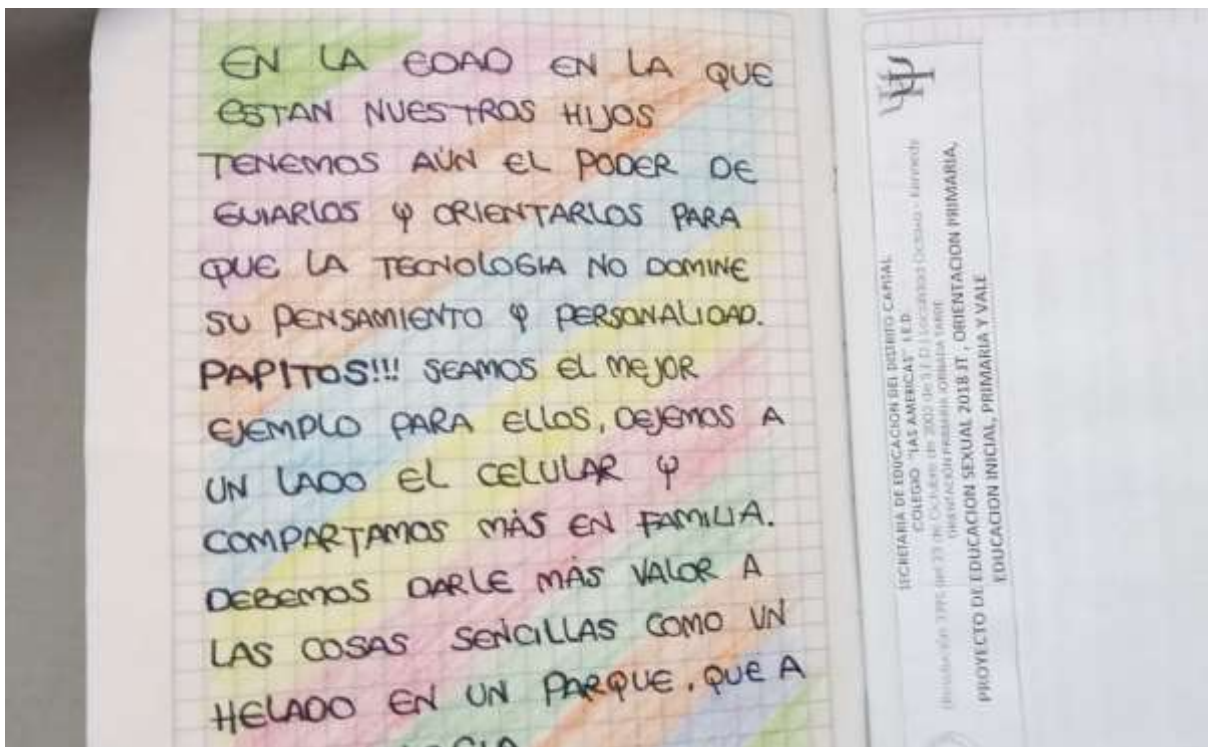 EN LA EDAD EN LA QUE
ESTAN NUESTROS HIJOS
TENEMOS AÚN EL PODER DE
GUIARLOS Y ORIENTARLOS PARA
QUE LA TECNOLOGIA NO DOMINE
SU PENSAMIENTO Y PERSONALIDAD.
PAPITOS!!! SEAMOS EL MEJOR
EJEMPLO PARA ELLOS, DEJEMOS A
UN LADO EL CELULAR Y
COMPARTAMOS MÁS EN FAMILIA.
DEBEMOS DARLE MÁS VALOR A
LAS COSAS SENCILLAS COMO UN
HELADO EN UN PARQUE, QUE A
SECRETARIA DE EDUCACION DEL DISTRITO CAPITAL
COLEGIO "LAS AMERICAS" I.E.D.
de Octubre de 2002 de
ORIENTACIÓN PRIMARIA JORNADA TARDE
PROYECTO DE EDUCACION SEXUAL 2018 JT, ORIENTACION PRIMARIA,
EDUCACION INICIAL, PRIMARIA Y VALE